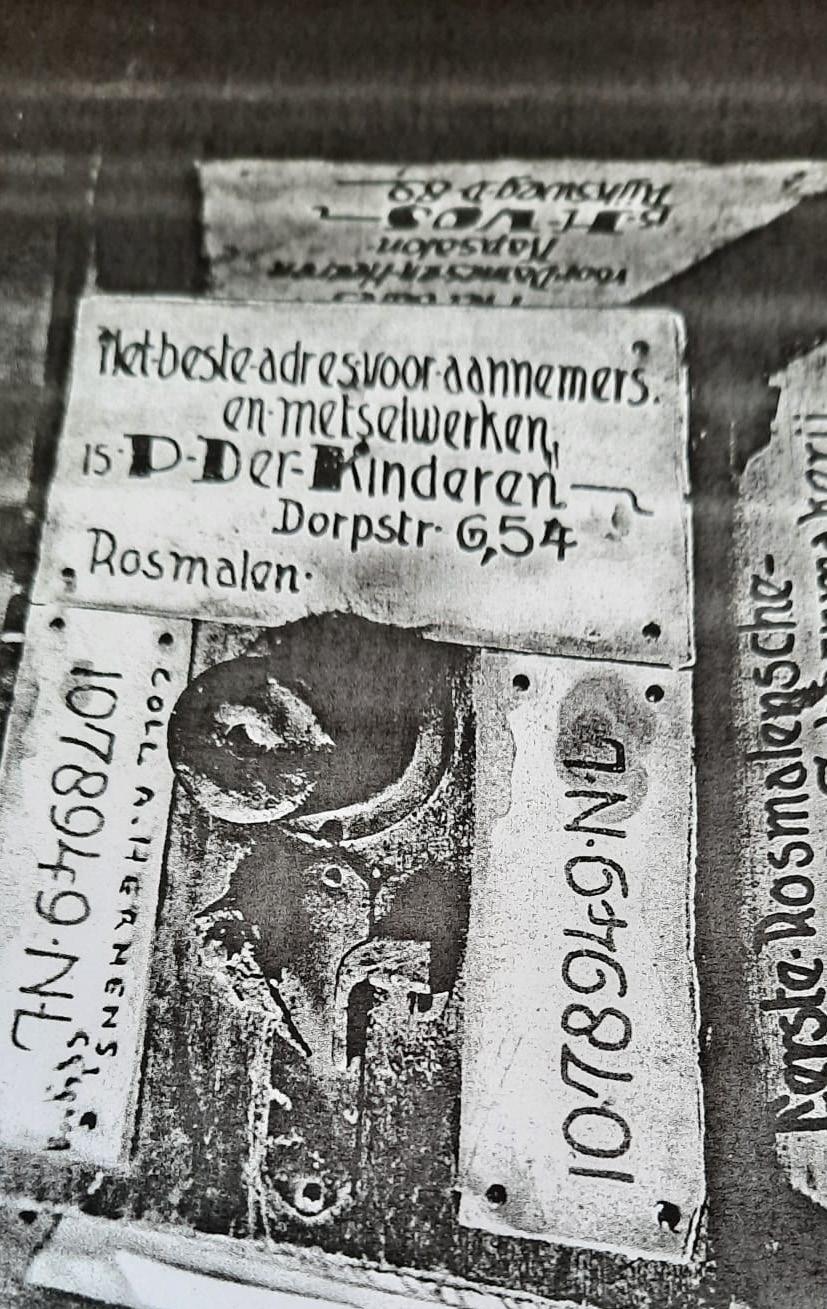 Rijnsweg-D-89
B-H-VOS
Kapsalon
voor-Dames-en-Heeren
Het-beste-adres-voor-aannemers.
en-metselwerken,
is-D-Der-Kinderen
Dorpstr. G,54
Rosmalen.
1078949.N.L
COLL A.HERMENS
1078949.N.L
Eerste-Rosmalensche-